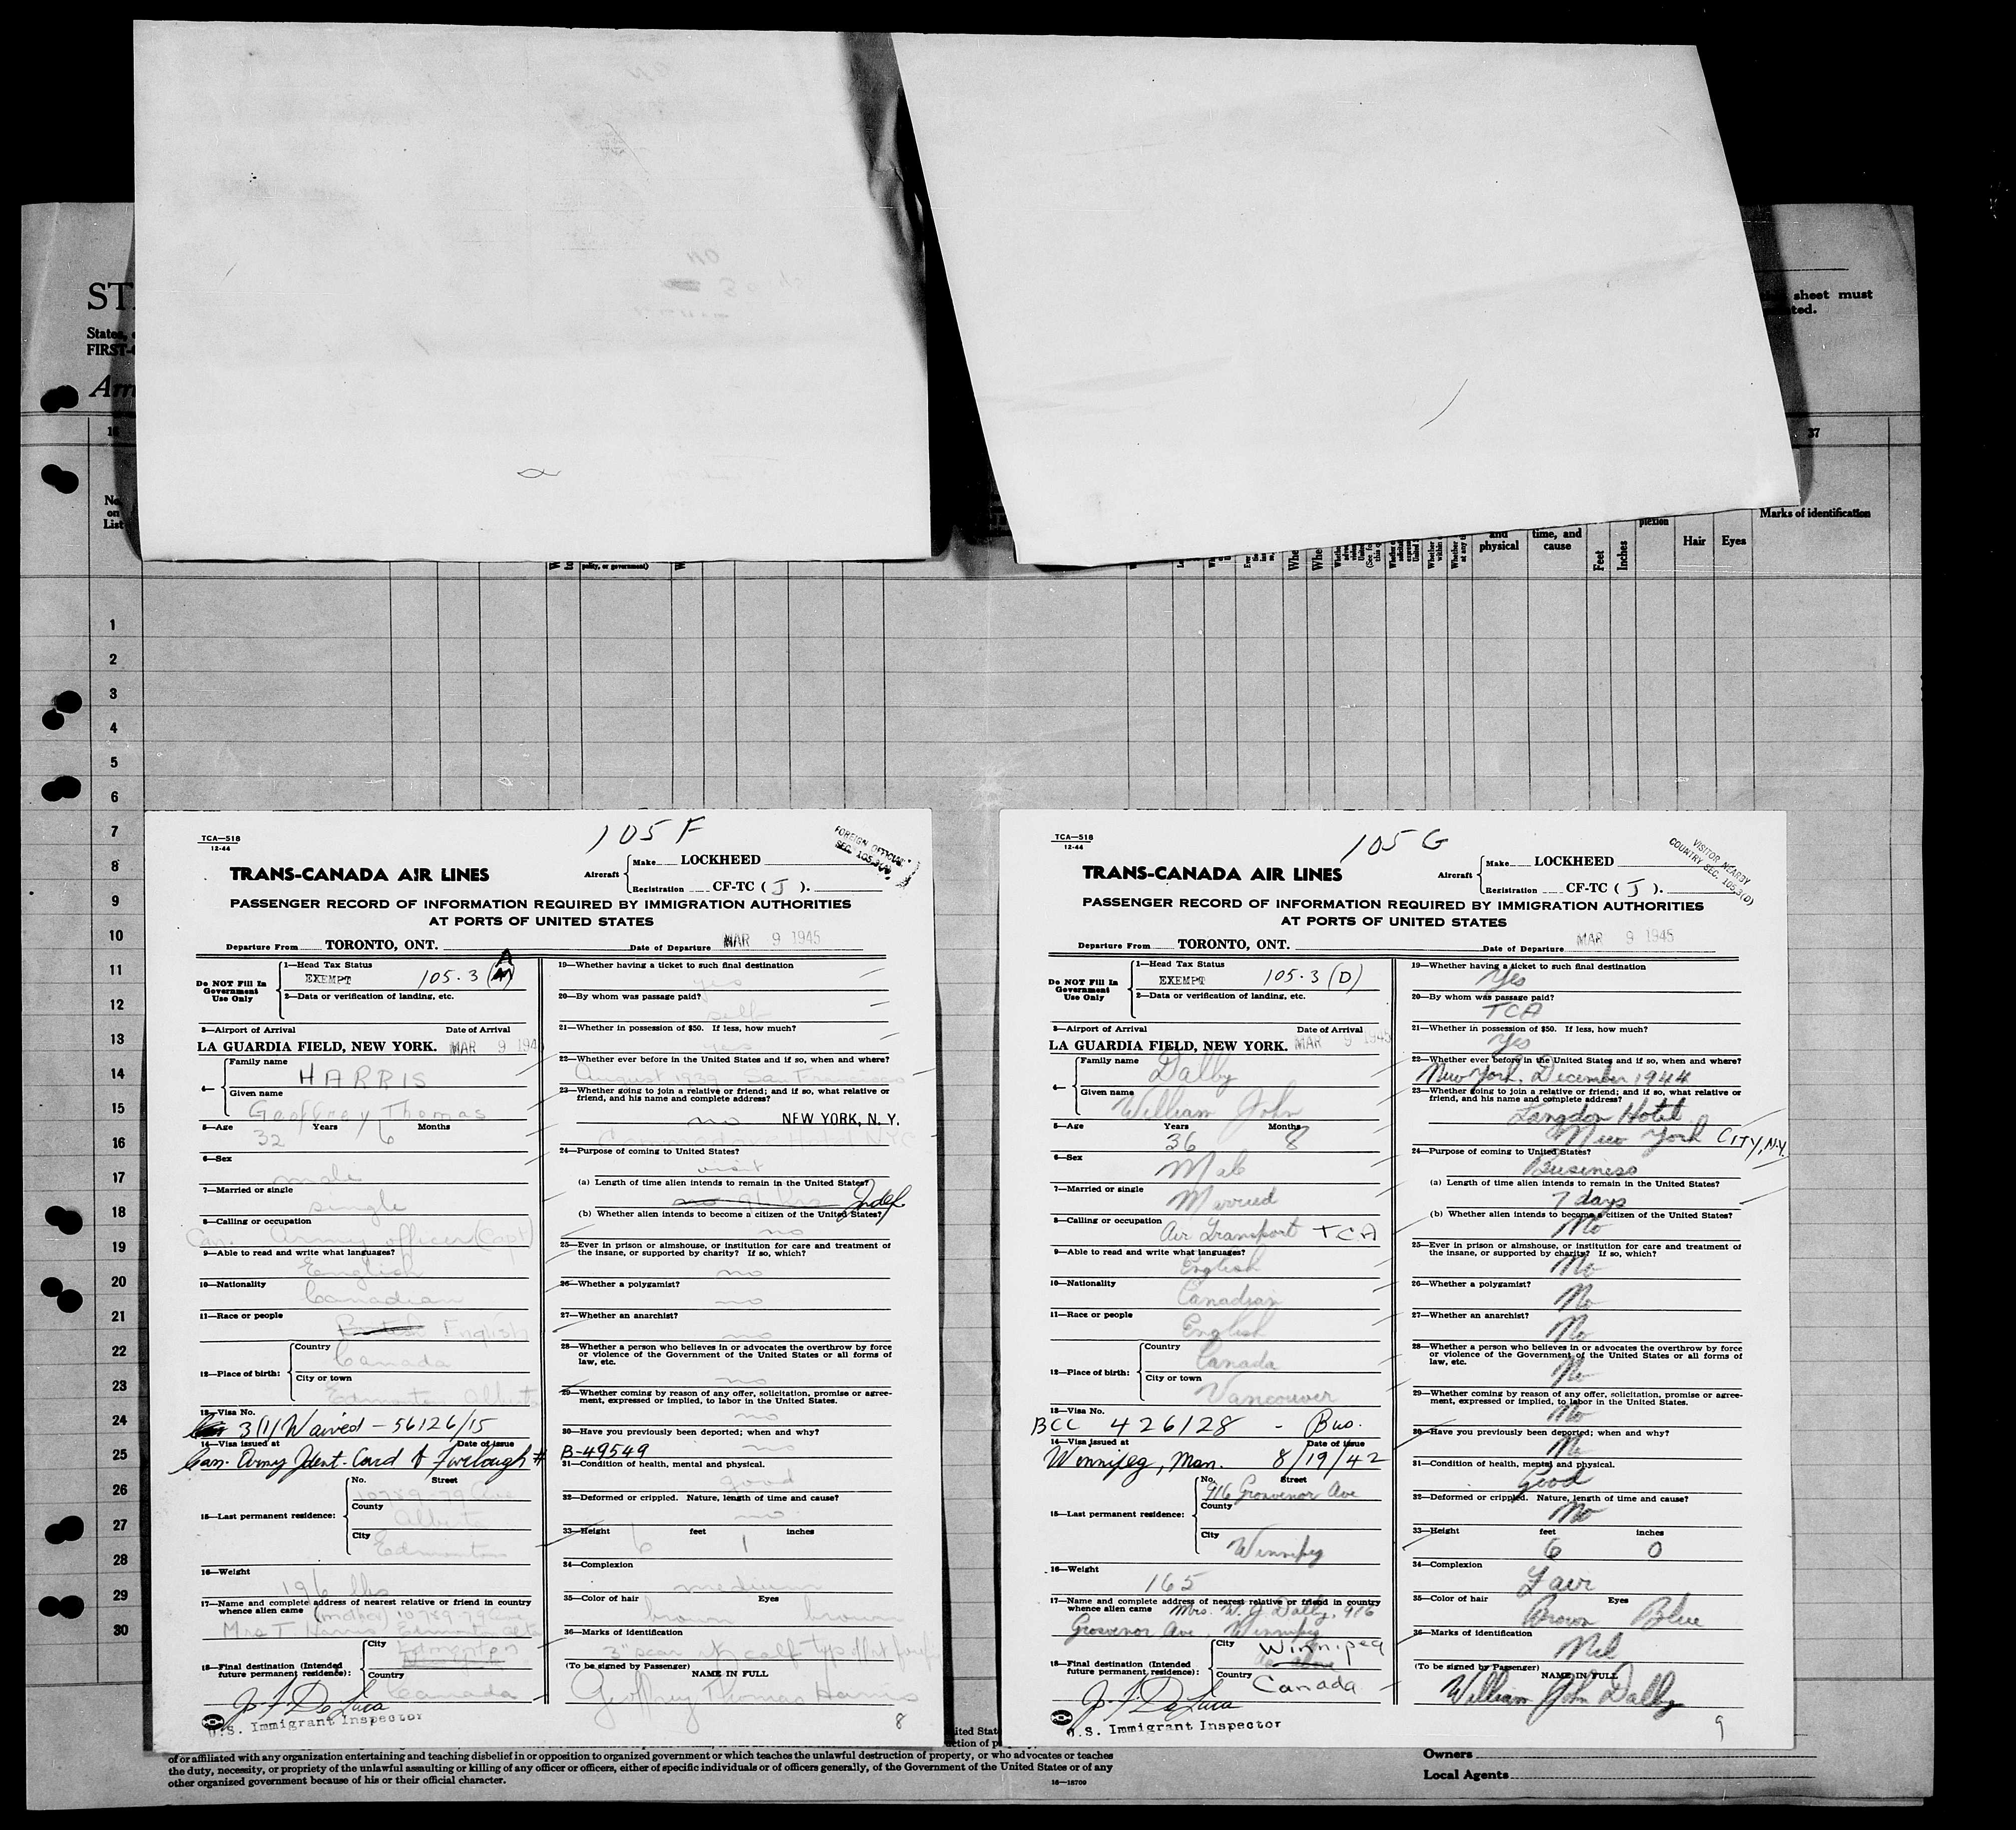 ST
States,
FIRST-
Arr
sheet must
ted.
37
No.
on
List
polity, or government)
and
physical
time, and
cause
Feet
Inches
plexion
Hair
Eyes
Marks of identification
1
2
3
4
5
6
7
8
9
10
11
12
13
14
15
16
17
18
19
20
21
22
23
24
25
26
27
28
29
30
TCA—518
12-44
105 F
FOREIGN OFFICIAL
SEC. 105.3(A)
TRANS-CANADA AIR LINES
Aircraft
Make LOCKHEED
Registration CF-TC ( J ).
PASSENGER RECORD OF INFORMATION REQUIRED BY IMMIGRATION AUTHORITIES
AT PORTS OF UNITED STATES
Departure From TORONTO, ONT. Date of Departure MAR 9 1945
Do NOT Fill In
Government
Use Only
1—Head Tax Status
EXEMPT 105.3 (A)
2—Data or verification of landing, etc.
3—Airport of Arrival Date of Arrival
LA GUARDIA FIELD, NEW YORK. MAR 9 194
4—
Family name
HARRIS
Given name
Geoffrey Thomas
5—Age Years Months
32 6
6—Sex
male
7—Married or single
single
8—Calling or occupation
Can. Army officer (Capt)
9—Able to read and write what languages?
English
10—Nationality
Canadian
11—Race or people
English
12—Place of birth:
Country
Canada
City or town
Edmonton Alberta
13—Visa No.
3(1) Waived - 56126/15
14—Visa issued at Date of issue
Can. Army Ident. Card & Furlough # B-49549
15—Last permanent residence:
No. Street
10789-79 Ave
County
Alberta
City
Edmonton
16—Weight
196 lbs
17—Name and complete address of nearest relative or friend in country
whence alien came (mother) 10789-79 Ave
Mrs T. Harris Edmonton Alta
18—Final destination (Intended
future permanent residence):
City
Edmonton
Country
Canada
J. F. De Luca
U.S. Immigrant Inspector
19—Whether having a ticket to such final destination
yes
20—By whom was passage paid?
self
21—Whether in possession of $50. If less, how much?
yes
22—Whether ever before in the United States and if so, when and where?
August 1939 San Francisco
23—Whether going to join a relative or friend; and if so, what relative or
friend, and his name and complete address?
no NEW YORK, N. Y.
Commodore Hotel NYC
24—Purpose of coming to United States?
visit
(a) Length of time alien intends to remain in the United States?
Indef
(b) Whether alien intends to become a citizen of the United States?
no
25—Ever in prison or almshouse, or institution for care and treatment of
the insane, or supported by charity? If so, which?
no
26—Whether a polygamist?
no
27—Whether an anarchist?
no
28—Whether a person who believes in or advocates the overthrow by force
or violence of the Government of the United States or all forms of
law, etc.
no
29—Whether coming by reason of any offer, solicitation, promise or agree-
ment, expressed or implied, to labor in the United States.
no
30—Have you previously been deported; when and why?
no
31—Condition of health, mental and physical.
good
32—Deformed or crippled. Nature, length of time and cause?
no
33—Height feet inches
6 1
34—Complexion
medium
35—Color of hair Eyes
brown brown
36—Marks of identification
3" scar rt calf
(To be signed by Passenger)
NAME IN FULL
Geoffrey Thomas Harris
8
TCA—518
12-44
105 G
VISITOR NEARBY
COUNTRY SEC. 105.3(D)
TRANS-CANADA AIR LINES
Aircraft
Make LOCKHEED
Registration CF-TC ( J ).
PASSENGER RECORD OF INFORMATION REQUIRED BY IMMIGRATION AUTHORITIES
AT PORTS OF UNITED STATES
Departure From TORONTO, ONT. Date of Departure MAR 9 1945
Do NOT Fill In
Government
Use Only
1—Head Tax Status
EXEMPT 105.3 (D)
2—Data or verification of landing, etc.
3—Airport of Arrival Date of Arrival
LA GUARDIA FIELD, NEW YORK. MAR 9 1945
4—
Family name
Dalby
Given name
William John
5—Age Years Months
36 8
6—Sex
Male
7—Married or single
Married
8—Calling or occupation
Air Transport TCA
9—Able to read and write what languages?
English
10—Nationality
Canadian
11—Race or people
English
12—Place of birth:
Country
Canada
City or town
Vancouver
13—Visa No.
BCC 426128 - Bus.
14—Visa issued at Date of issue
Winnipeg, Man. 8/19/42
15—Last permanent residence:
No. Street
916 Grosvenor Ave
County
City
Winnipeg
16—Weight
165
17—Name and complete address of nearest relative or friend in country
whence alien came Mrs. W. J. Dalby, 916
Grosvenor Ave. Winnipeg
18—Final destination (Intended
future permanent residence):
City
Winnipeg
as above
Country
Canada
J. F. De Luca
U.S. Immigrant Inspector
19—Whether having a ticket to such final destination
Yes
20—By whom was passage paid?
TCA
21—Whether in possession of $50. If less, how much?
Yes
22—Whether ever before in the United States and if so, when and where?
New York, December 1944
23—Whether going to join a relative or friend; and if so, what relative or
friend, and his name and complete address?
Langdon Hotel
New York CITY, N.Y.
24—Purpose of coming to United States?
Business
(a) Length of time alien intends to remain in the United States?
7 days
(b) Whether alien intends to become a citizen of the United States?
No
25—Ever in prison or almshouse, or institution for care and treatment of
the insane, or supported by charity? If so, which?
No
26—Whether a polygamist?
No
27—Whether an anarchist?
No
28—Whether a person who believes in or advocates the overthrow by force
or violence of the Government of the United States or all forms of
law, etc.
No
29—Whether coming by reason of any offer, solicitation, promise or agree-
ment, expressed or implied, to labor in the United States.
No
30—Have you previously been deported; when and why?
No
31—Condition of health, mental and physical.
Good
32—Deformed or crippled. Nature, length of time and cause?
No
33—Height feet inches
6 0
34—Complexion
Fair
35—Color of hair Eyes
Brown Blue
36—Marks of identification
Nil
(To be signed by Passenger)
NAME IN FULL
William John Dalby
9
of or affiliated with any organization entertaining and teaching disbelief in or opposition to organized government or which teaches the unlawful destruction of property, or who advocates or teaches
the duty, necessity, or propriety of the unlawful assaulting or killing of any officer or officers, either of specific individuals or of officers generally, of the Government of the United States or of any
other organized government because of his or their official character.
16—18700
Owners
Local Agents